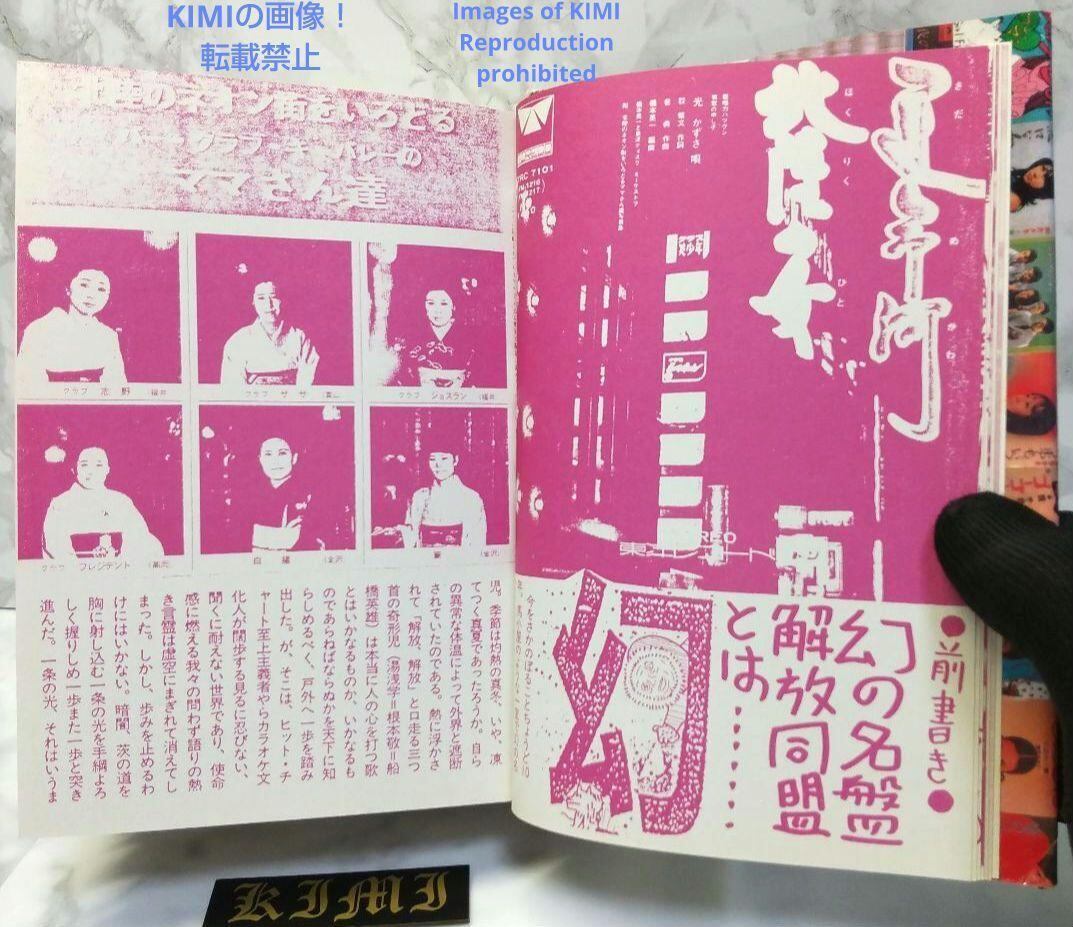 KIMIの画像！
転載禁止
Images of KIMI
Reproduction
prohibited
北陸のネオン街をいろどる
ママさん達
クラブ 志野 (福井
クラブ ササ
クラブ ジョスラン (福井
クラブ プレジデント
白鳳 (金沢
(金沢)
北陸
ほくりく
ひと
光 かずさ 唄
TRC 7101
●前書き●
幻の名盤
解放同盟
とは
幻
今をさかのぼることちょうど10
児。季節は灼熱の真冬、いや、凍
てつく真夏であったろうか。自ら
の異常な体温によって外界と遮断
されていたのである。熱に浮かさ
れて「解放、解放」と口走る三つ
首の奇形児（湯浅学＝根本敬＝船
橋英雄）は本当に人の心を打つ歌
とはいかなるものか、いかなるも
のであらねばならぬかを天下に知
らしめるべく、戸外へ一歩を踏み
出した。が、そこは、ヒット・チ
ャート至上主義者やらカラオケ文
化人が闊歩する見るに忍びない、
聞くに耐えない世界であり、使命
感に燃える我々の問わず語りの熱
き言霊は虚空にまぎれて消えてし
まった。しかし、歩みを止めるわ
けにはいかない。暗闇、茨の道を
胸に射し込む一条の光を手綱よろ
しく握りしめ一歩また一歩と突き
進んだ。一条の光、それはいうま
KIMI